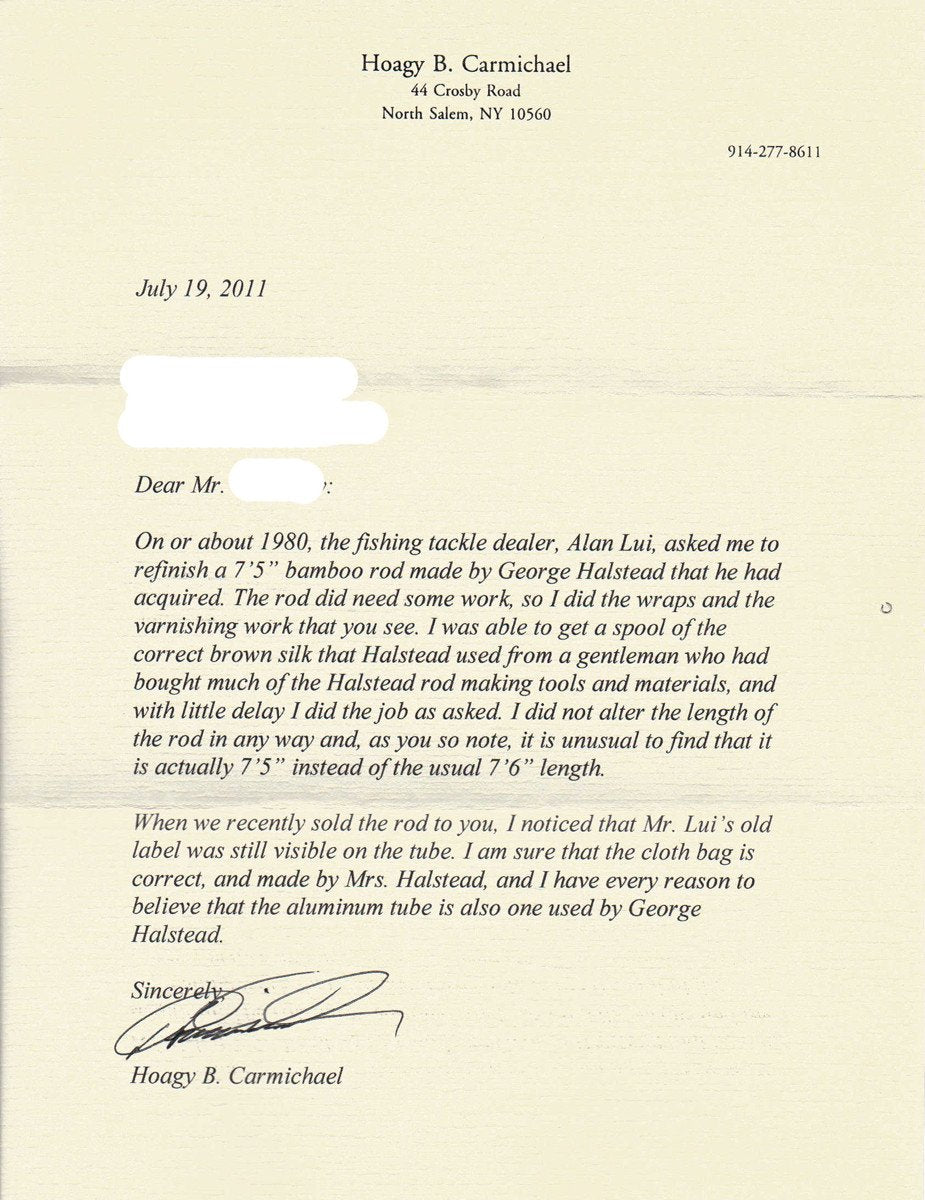 Hoagy B. Carmichael
44 Crosby Road
North Salem, NY 10560
914-277-8611
July 19, 2011
Dear Mr.
On or about 1980, the fishing tackle dealer, Alan Lui, asked me to
refinish a 7’5” bamboo rod made by George Halstead that he had
acquired. The rod did need some work, so I did the wraps and the
varnishing work that you see. I was able to get a spool of the
correct brown silk that Halstead used from a gentleman who had
bought much of the Halstead rod making tools and materials, and
with little delay I did the job as asked. I did not alter the length of
the rod in any way and, as you so note, it is unusual to find that it
is actually 7’5” instead of the usual 7’6” length.
When we recently sold the rod to you, I noticed that Mr. Lui’s old
label was still visible on the tube. I am sure that the cloth bag is
correct, and made by Mrs. Halstead, and I have every reason to
believe that the aluminum tube is also one used by George
Halstead.
Sincerely,
Hoagy B. Carmichael